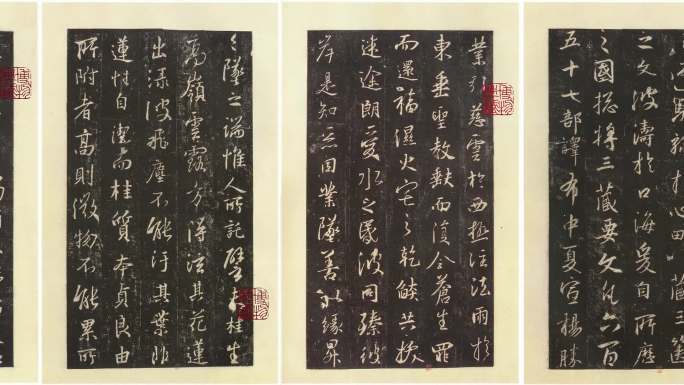 馳驟於心田八藏三篋
之文波濤於口海爰自所歷
之國揔將三藏要文凡六百
五十七部譯布中夏宣楊勝
業引慈雲於西極注法雨於
東垂聖教缺而復全蒼生罪
而還福濕火宅之乾焰共拔
迷途朗愛水之昏波同臻彼
岸是知惡因業墜善以緣昇
々墜之端惟人所託譬夫桂生
高嶺雲露方得泫其花蓮
出淥波飛塵不能汙其葉非
蓮性自潔而桂質本貞良由
所附者高則微物不能累所